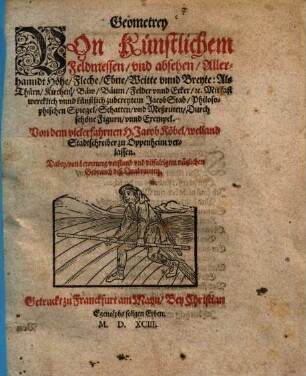 Geometrey
VOn Künstlichem
Feldmessen / vnd absehen / Aller-
handt Höhe / Fleche / Ebne / Weitte vnnd Breyte: Als
Thürn / Kirchen / Bäw / Bäum / Felder vnnd Ecker / ꝛc. Mit fast
wercklich vnnd künstlich zubereytem Jacob Stab / Philoso-
phischen Spiegel / Schatten / vnd Meßruten / Durch
schöne Figurn / vnnd Exempel.
Von dem vielerfahrnen H. Jacob Köbel / weiland
Stadtschreiber zu Oppenheim ver-
lassen.
Dabey von bereytung / verstand vnd vilfaltigem nützlichen
Gebrauch deß Quadranten.
Getruckt zu Franckfurt am Mayn / Bey Christian
Egenolphs seligen Erben.
M. D. XCIII.